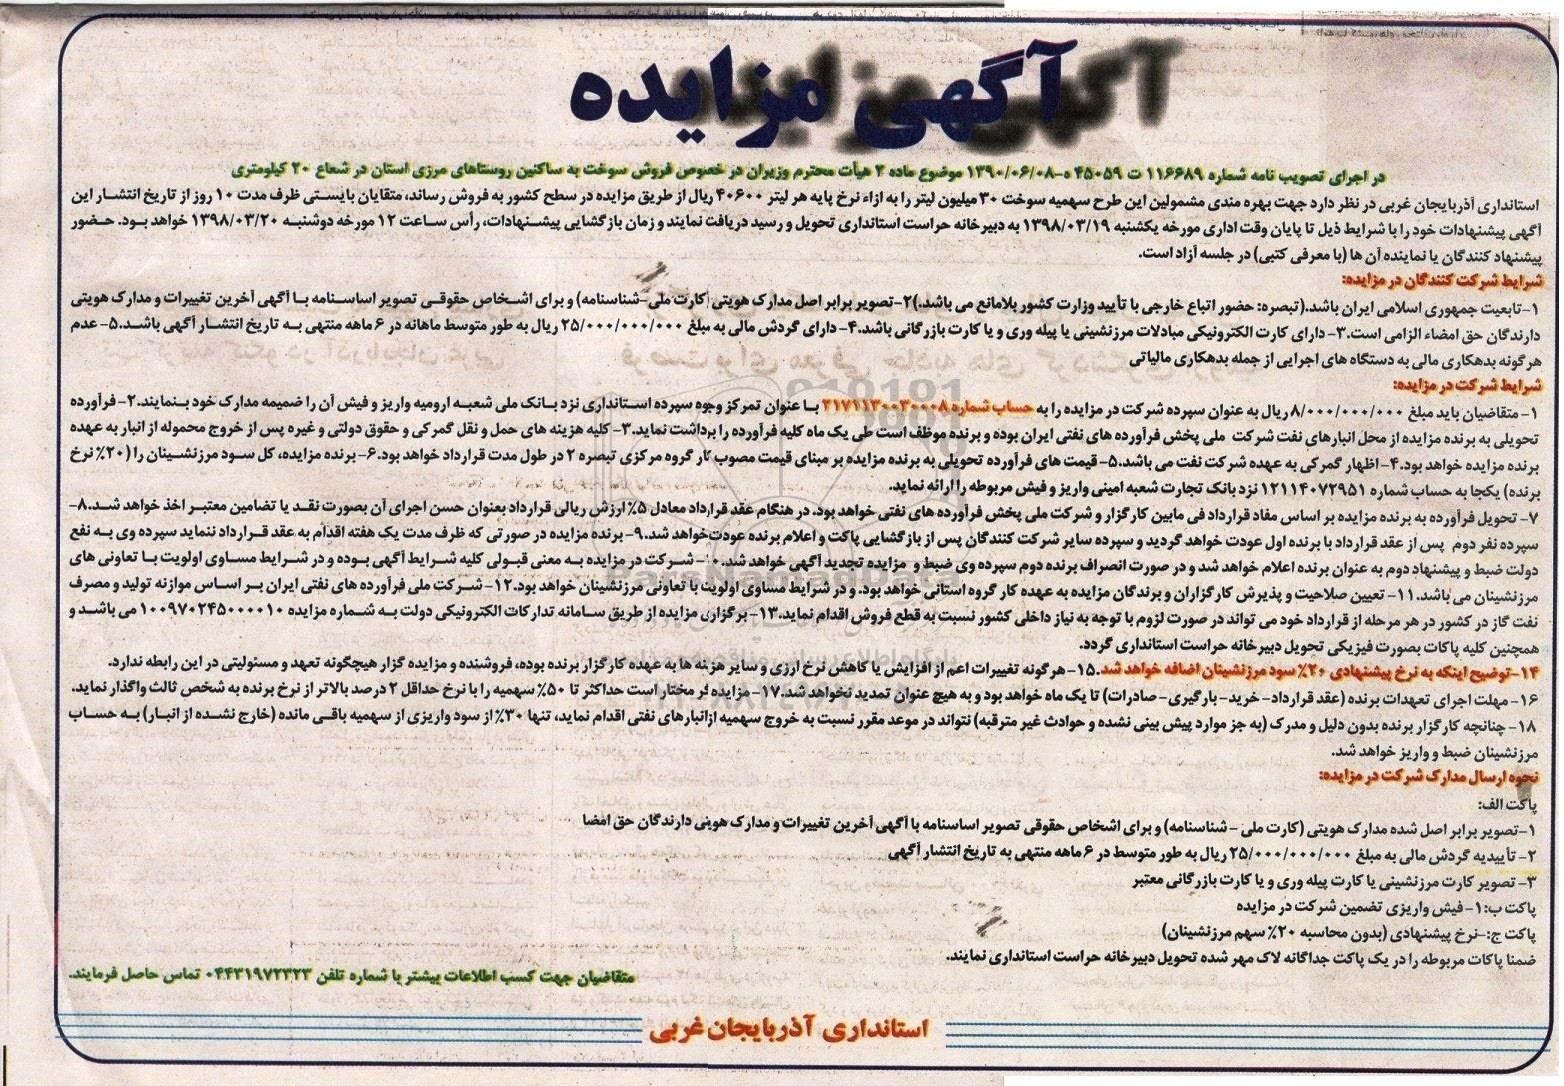 آگهی مزایده
در اجرای تصویب نامه شماره ۱۱۶۶۸۹ ت ۴۵۰۵۹ ه-۱۳۹۰/۰۶/۰۸ موضوع ماده ۴ هیأت محترم وزیران در خصوص فروش سوخت به ساکنین روستاهای مرزی استان در شعاع ۲۰ کیلومتری
استانداری آذربایجان غربی در نظر دارد جهت بهره مندی مشمولین این طرح سهمیه سوخت ۳۰ میلیون لیتر را به ازاء نرخ پایه هر لیتر ۴۰۶۰۰ ریال از طریق مزایده در سطح کشور به فروش رساند، متقایان بایستی ظرف مدت ۱۰ روز از تاریخ انتشار این
آگهی پیشنهادات خود را با شرایط ذیل تا پایان وقت اداری مورخه یکشنبه ۱۳۹۸/۰۳/۱۹ به دبیرخانه حراست استانداری تحویل و رسید دریافت نمایند و زمان بازگشایی پیشنهادات، رأس ساعت ۱۲ مورخه دوشنبه ۱۳۹۸/۰۳/۲۰ خواهد بود. حضور
پیشنهاد کنندگان یا نماینده آن ها (با معرفی کتبی) در جلسه آزاد است.
شرایط شرکت کنندگان در مزایده:
۱-تابعیت جمهوری اسلامی ایران باشد.(تبصره: حضور اتباع خارجی با تأیید وزارت کشور بلامانع می باشد.)۲-تصویر برابر اصل مدارک هویتی (کارت ملی-شناسنامه) و برای اشخاص حقوقی تصویر اساسنامه با آگهی آخرین تغییرات و مدارک هویتی
دارندگان حق امضاء الزامی است.۳-دارای کارت الکترونیکی مبادلات مرزنشینی یا پیله وری و یا کارت بازرگانی باشد.۴-دارای گردش مالی به مبلغ ۲۵/۰۰۰/۰۰۰/۰۰۰ ریال به طور متوسط ماهانه در ۶ ماهه منتهی به تاریخ انتشار آگهی باشد.۵-عدم
هرگونه بدهکاری مالی به دستگاه های اجرایی از جمله بدهکاری مالیاتی
شرایط شرکت در مزایده:
۱-متقاضیان باید مبلغ ۸/۰۰۰/۰۰۰/۰۰۰ ریال به عنوان سپرده شرکت در مزایده را به حساب شماره ۲۱۷۱۱۳۰۰۳۰۰۰۸ با عنوان تمرکز وجوه سپرده استانداری نزد بانک ملی شعبه ارومیه واریز و فیش آن را ضمیمه مدارک خود بنمایند.۲-فرآورده
تحویلی به برنده مزایده از محل انبارهای نفت شرکت ملی پخش فرآورده های نفتی ایران بوده و برنده موظف است طی یک ماه کلیه فرآورده را برداشت نماید.۳-کلیه هزینه های حمل و نقل گمرکی و حقوق دولتی و غیره پس از خروج محموله از انبار به عهده
برنده مزایده خواهد بود.۴-اظهار گمرکی به عهده شرکت نفت می باشد.۵-قیمت های فرآورده تحویلی به برنده مزایده بر مبنای قیمت مصوب کار گروه مرکزی تبصره ۲ در طول مدت قرارداد خواهد بود.۶-برنده مزایده، کل سود مرزنشینان را (۲۰٪ نرخ
برنده) یکجا به حساب شماره ۱۲۱۱۴۰۷۲۹۵۱ نزد بانک تجارت شعبه امینی واریز و فیش مربوطه را ارائه نماید.
۷-تحویل فرآورده به برنده مزایده بر اساس مفاد قرارداد فی مابین کارگزار و شرکت ملی پخش فرآورده های نفتی خواهد بود. در هنگام عقد قرارداد معادل ۵٪ ارزش ریالی قرارداد بعنوان حسن اجرای آن بصورت نقد یا تضامین معتبر اخذ خواهد شد.۸-
سپرده نفر دوم پس از عقد قرارداد با برنده اول عودت خواهد گردید و سپرده سایر شرکت کنندگان پس از بازگشایی پاکت و اعلام برنده عودت خواهد شد.۹-برنده مزایده در صورتی که ظرف مدت یک هفته اقدام به عقد قرارداد ننماید سپرده وی به نفع
دولت ضبط و پیشنهاد دوم به عنوان برنده اعلام خواهد شد و در صورت انصراف برنده دوم سپرده وی ضبط و مزایده تجدید آگهی خواهد شد.۱۰-شرکت در مزایده به معنی قبولی کلیه شرایط آگهی بوده و در شرایط مساوی اولویت با تعاونی های
مرزنشینان می باشد.۱۱-تعیین صلاحیت و پذیرش کارگزاران و برندگان مزایده به عهده کار گروه استانی خواهد بود. و در شرایط مساوی اولویت با تعاونی مرزنشینان خواهد بود.۱۲-شرکت ملی فرآورده های نفتی ایران بر اساس موازنه تولید و مصرف
نفت گاز در کشور در هر مرحله از قرارداد خود می تواند در صورت لزوم با توجه به نیاز داخلی کشور نسبت به قطع فروش اقدام نماید.۱۳-برگزاری مزایده از طریق سامانه تدارکات الکترونیکی دولت به شماره مزایده ۱۰۰۹۷۰۲۴۵۰۰۰۰۱۰ می باشد و
همچنین کلیه پاکات بصورت فیزیکی تحویل دبیرخانه حراست استانداری گردد.
۱۴-توضیح اینکه به نرخ پیشنهادی ۲۰٪ سود مرزنشینان اضافه خواهد شد.۱۵-هرگونه تغییرات اعم از افزایش یا کاهش نرخ ارزی و سایر هزینه ها به عهده کارگزار برنده بوده، فروشنده و مزایده گزار هیچگونه تعهد و مسئولیتی در این رابطه ندارد.
۱۶-مهلت اجرای تعهدات برنده (عقد قرارداد-خرید-بارگیری-صادرات) تا یک ماه خواهد بود و به هیچ عنوان تمدید نخواهد شد.۱۷-مزایده گر مختار است حداکثر تا ۵۰٪ سهمیه را با نرخ حداقل ۲ درصد بالاتر از نرخ برنده به شخص ثالث واگذار نماید.
۱۸-چنانچه کارگزار برنده بدون دلیل و مدرک (به جز موارد پیش بینی نشده و حوادث غیر مترقبه) نتواند در موعد مقرر نسبت به خروج سهمیه ازانبارهای نفتی اقدام نماید، تنها ۳۰٪ از سود واریزی از سهمیه باقی مانده (خارج نشده از انبار) به حساب
مرزنشینان ضبط و واریز خواهد شد.
نحوه ارسال مدارک شرکت در مزایده:
پاکت الف:
۱-تصویر برابر اصل شده مدارک هویتی (کارت ملی - شناسنامه) و برای اشخاص حقوقی تصویر اساسنامه با آگهی آخرین تغییرات و مدارک هویتی دارندگان حق امضا
۲-تأییدیه گردش مالی به مبلغ ۲۵/۰۰۰/۰۰۰/۰۰۰ ریال به طور متوسط در ۶ ماهه منتهی به تاریخ انتشار آگهی
۳-تصویر کارت مرزنشینی یا کارت پیله وری و یا کارت بازرگانی معتبر
پاکت ب:۱-فیش واریزی تضمین شرکت در مزایده
پاکت ج:-نرخ پیشنهادی (بدون محاسبه ۲۰٪ سهم مرزنشینان)
ضمنا پاکات مربوطه را در یک پاکت جداگانه لاک مهر شده تحویل دبیرخانه حراست استانداری نمایند.
متقاضیان جهت کسب اطلاعات بیشتر با شماره تلفن ۰۴۴۳۱۹۷۲۳۲۳ تماس حاصل فرمایند.
استانداری آذربایجان غربی